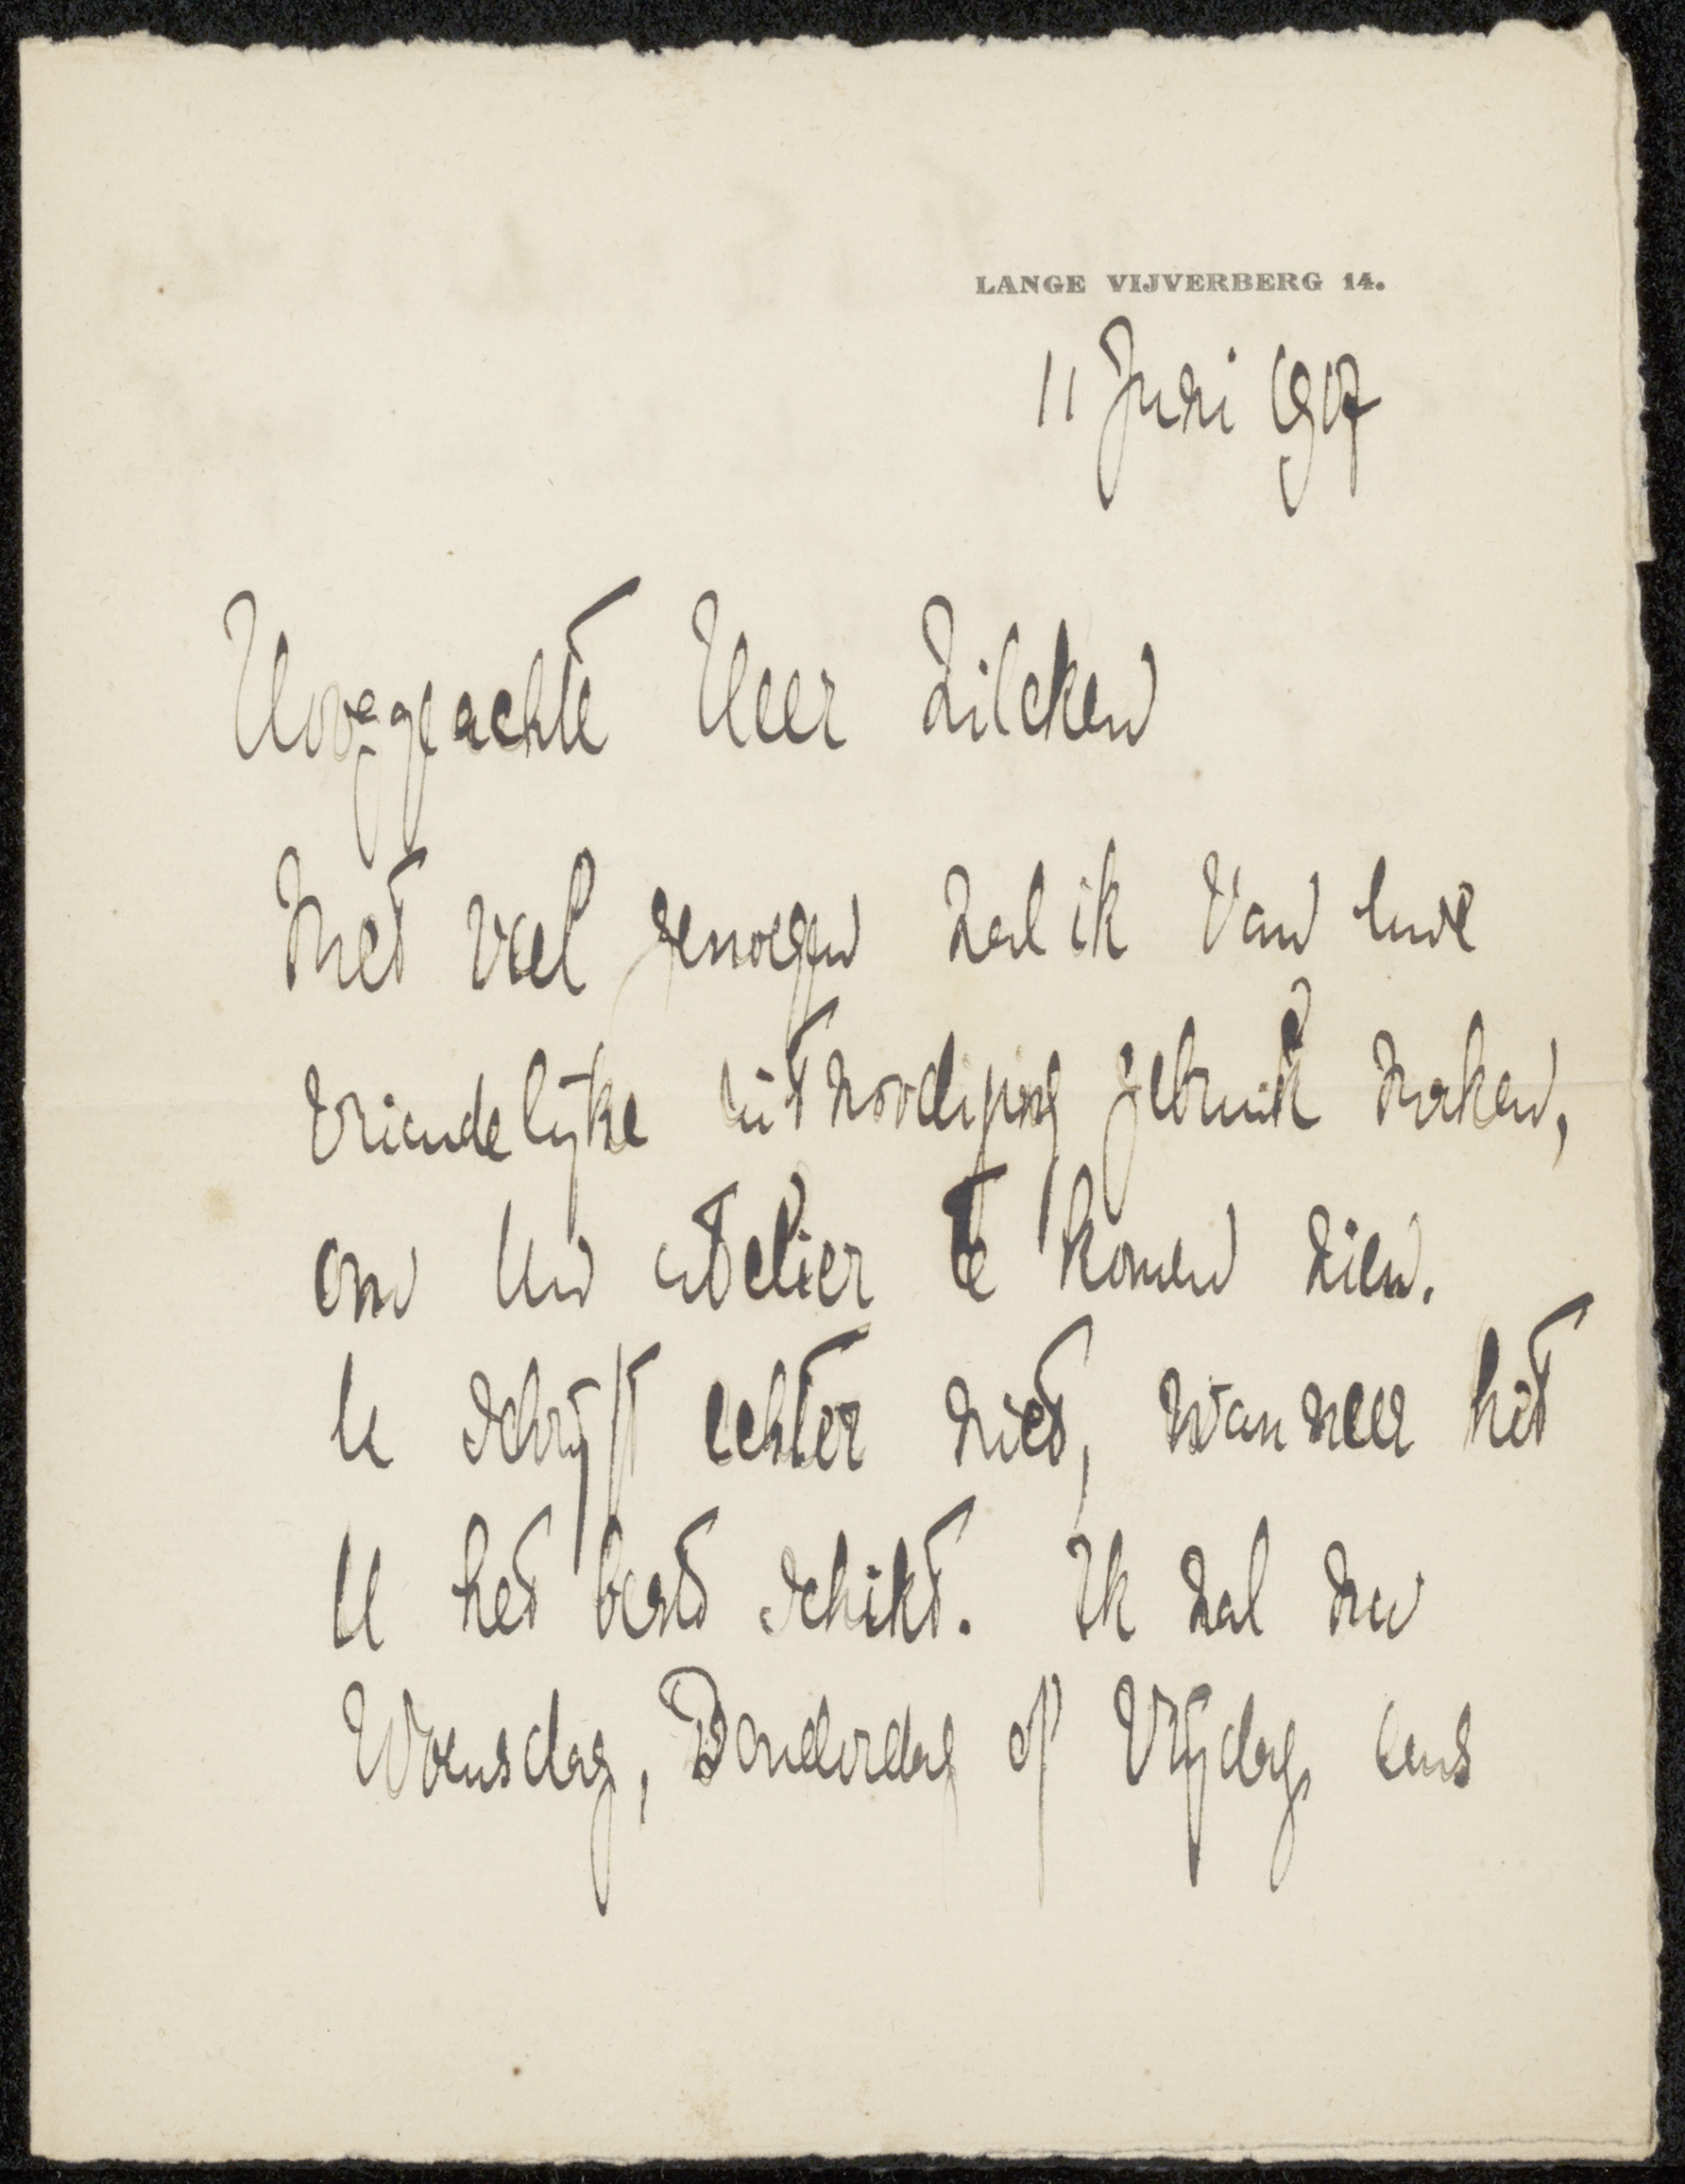 LANGE VIJVERBERG 14.
11 Juni 1907
Hooggeachte Heer Zilcken
Met veel genoegen zal ik van Uwe
vriendelijke uitnoodiging gebruik maken,
om Uw atelier te komen zien.
U schrijft echter niet, wanneer het
U het best schikt. Ik zal nu
Woensdag, Donderdag of Vrijdag eens